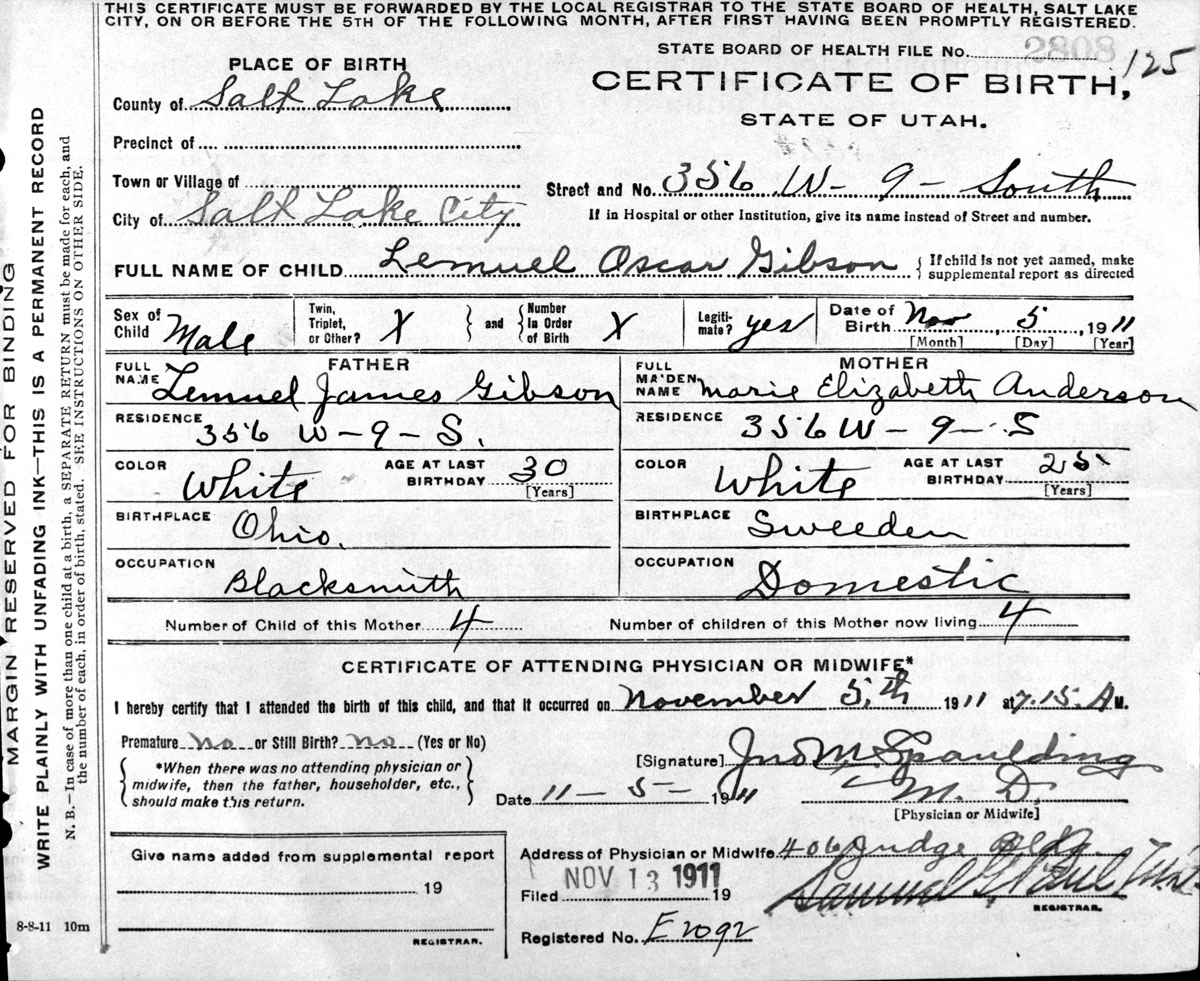 THIS CERTIFICATE MUST BE FORWARDED BY THE LOCAL REGISTRAR TO THE STATE BOARD OF HEALTH, SALT LAKE
CITY, ON OR BEFORE THE 5TH OF THE FOLLOWING MONTH, AFTER FIRST HAVING BEEN PROMPTLY REGISTERED.
MARGIN RESERVED FOR BINDING
WRITE PLAINLY WITH UNFADING INK—THIS IS A PERMANENT RECORD
N. B.—In case of more than one child at a birth, a SEPARATE RETURN must be made for each, and
the number of each, in order of birth, stated. SEE INSTRUCTIONS ON OTHER SIDE.
STATE BOARD OF HEALTH FILE No. 2808 125
PLACE OF BIRTH
CERTIFICATE OF BIRTH,
STATE OF UTAH.
County of Salt Lake
Precinct of
Town or Village of
Street and No. 356 W- 9- South
City of Salt Lake City
If in Hospital or other Institution, give its name instead of Street and number.
FULL NAME OF CHILD Lemuel Oscar Gibson { If child is not yet named, make
supplemental report as directed
Sex of Child Male
Twin, Triplet, or Other? X } and { Number In Order of Birth X
Legitimate? yes
Date of Birth Nov, 5, 1911
[Month] [Day] [Year]
FATHER
FULL NAME Lemuel James Gibson
RESIDENCE 356 W-9-S.
COLOR White AGE AT LAST BIRTHDAY 30
[Years]
BIRTHPLACE Ohio.
OCCUPATION Blacksmith
MOTHER
FULL MAIDEN NAME Marie Elizabeth Anderson
RESIDENCE 356 W-9-S
COLOR White AGE AT LAST BIRTHDAY 25
[Years]
BIRTHPLACE Sweeden
OCCUPATION Domestic
Number of Child of this Mother 4 Number of children of this Mother now living 4
CERTIFICATE OF ATTENDING PHYSICIAN OR MIDWIFE*
I hereby certify that I attended the birth of this child, and that it occurred on November 5th 1911 at 7.15 A M.
Premature no or Still Birth? no (Yes or No)
*When there was no attending physician or
midwife, then the father, householder, etc.,
should make this return.
[Signature] Jno M Spaulding
Date 11-5-1911 M. D.
[Physician or Midwife]
Give name added from supplemental report
19
REGISTRAR.
8-8-11 10m
Address of Physician or Midwife 406 Judge Bldg
Filed NOV 13 1911 19
Samuel G Paul
REGISTRAR.
Registered No. E2092